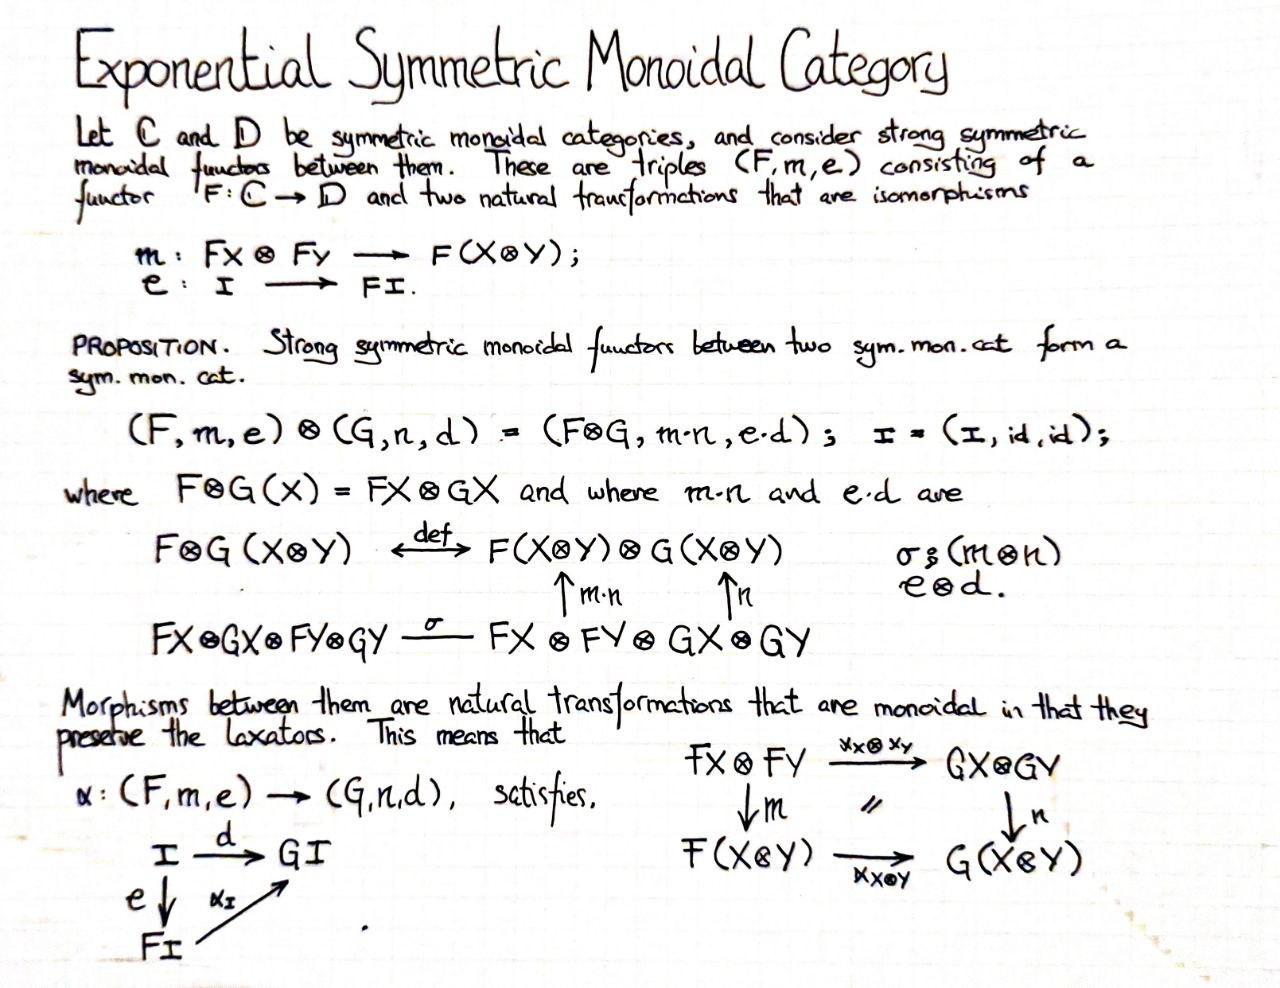 Exponential Symmetric Monoidal Category
Let ℂ and 𝔻 be symmetric monoidal categories, and consider strong symmetric
monoidal functors between them. These are triples (F,m,e) consisting of a
functor F: ℂ → 𝔻 and two natural transformations that are isomorphisms
m: FX ⊗ FY ⟶ F(X⊗Y);
e: I ⟶ FI.
PROPOSITION. Strong symmetric monoidal functors between two sym. mon. cat form a
sym. mon. cat.
(F,m,e) ⊗ (G,n,d) = (F⊗G, m·n, e·d); I = (I, id, id);
where F⊗G(X) = FX ⊗ GX and where m·n and e·d are
F⊗G(X⊗Y) ⟷ def F(X⊗Y) ⊗ G(X⊗Y) σ⨾(m⊗n)
↑ m·n ↑ n e⊗d.
FX⊗GX⊗FY⊗GY σ FX ⊗ FY ⊗ GX ⊗ GY
Morphisms between them are natural transformations that are monoidal in that they
preserve the laxators. This means that
α: (F,m,e) → (G,n,d), satisfies.
FX ⊗ FY ⟶ αX⊗αY GX⊗GY
↓ m // ↓ n
F(X⊗Y) ⟶ αX⊗Y G(X⊗Y)
I ⟶ d GI
e ↓ αI ↗
FI